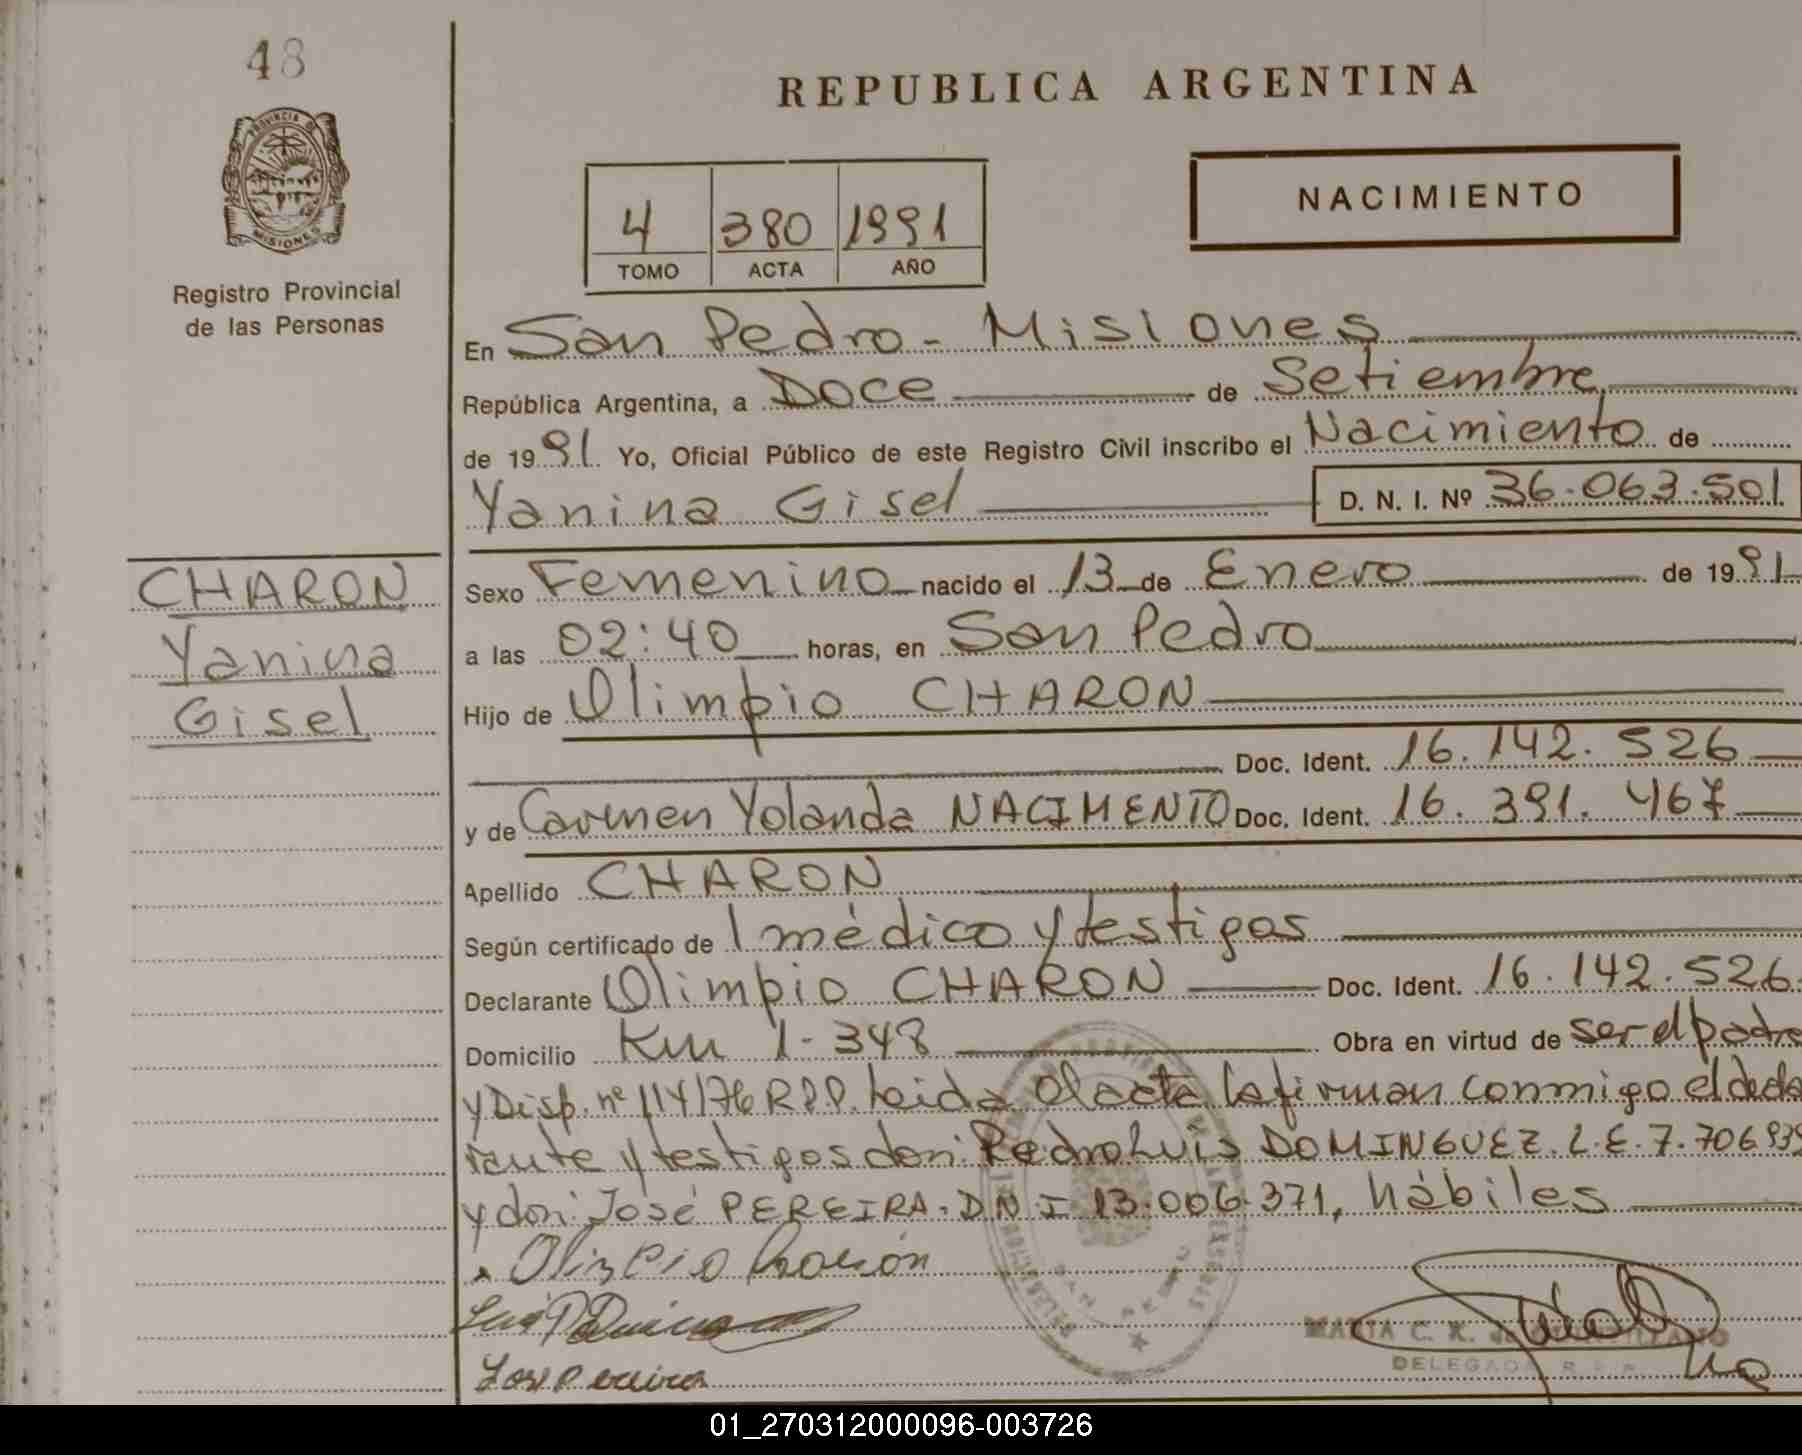 48
REPUBLICA ARGENTINA
PROVINCIA DE
MISIONES
Registro Provincial
de las Personas
4 380 1991
TOMO ACTA AÑO
NACIMIENTO
En San Pedro - Misiones
República Argentina, a Doce de Setiembre
de 1991 Yo, Oficial Público de este Registro Civil inscribo el Nacimiento de
Yanina Gisel D. N. I. Nº 36.063.501
CHARON
Yanina
Gisel
Sexo Femenino nacido el 13 de Enero de 1991
a las 02:40 horas, en San Pedro
Hijo de Olimpio CHARON
Doc. Ident. 16.142.526
y de Carmen Yolanda NACIMENTO Doc. Ident. 16.391.467
Apellido CHARON
Según certificado de 1 médico y testigos
Declarante Olimpio CHARON Doc. Ident. 16.142.526
Domicilio Km 1-348 Obra en virtud de ser el padre
y Disp. nº 114/76 R.P.P. Leida el acta la firman conmigo el decla
rante y testigos don: Pedro Luis DOMINGUEZ. L.E. 7.706.939
y don: José PEREIRA. DNI 13.006.371, hábiles
Olimpio
José Pereira
MARIA C. K. de
DELEGADA R.P.P.
SAN PEDRO
01_270312000096-003726